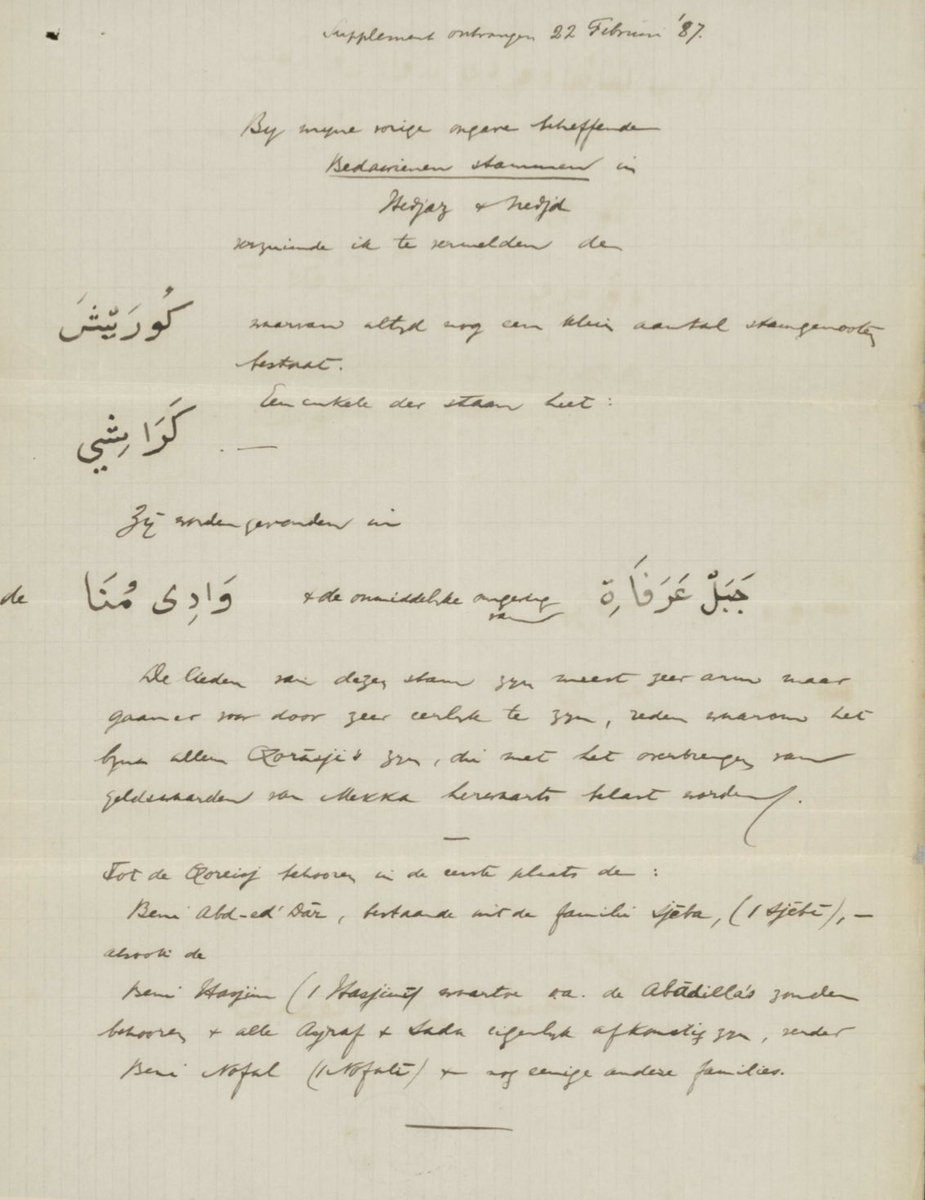 Supplement ontvangen 22 Februari '87.
By myne vorige opgave betreffende
Bedawienen stammen in
Hedjaz & Nedjd
verzuimde ik te vermelden den
كُورَيّشَ waarvan altyd nog een klein aantal stamgenooten
bestaat.
Een enkele der stam heet:
كَرَاشِي . —
Zÿ worden gevonden in
de وَادِى مُنَا & de onmiddelyke omgeving van جَبَلْ عَرَفَارِة
De lieden van dezen stam zyn meest zeer arm maar
gaan er voor door zeer eerlyk te zyn, reden waarom het
byna allen Qorāsji's zyn, die met het overbrengen van
geldswaarden van Mekka herwaarts belast worden.
—
Tot de Qoreisj behooren in de eerste plaats de:
Beni Abd-ed' Dār, bestaande uit de familie Sjēba, (1 Sjēbī), —
alsook de
Beni Hasjim (1 Hasjimī) waartoe o.a. de Abādilla's zouden
behooren & alle Asjraf & Sada eigenlyk afkomstig zyn, verder
Beni Nofal (1 Nofalī) & nog eenige andere families.